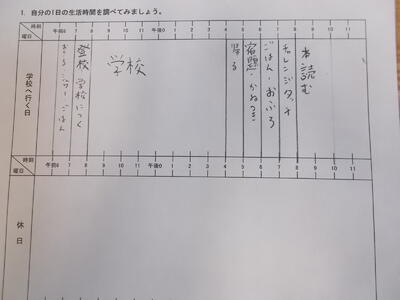 1. 自分の1日の生活時間を調べてみましょう。
時刻 午前6 7 8 9 10 11 午後0 1 2 3 4 5 6 7 8 9 10 11
曜日
学校へ行く日
ごはん
登校 学校につく
学校
帰る
宿題
ごはん・おふろ
チャレンジタッチ
本読む
時刻 午前6 7 8 9 10 11 午後0 1 2 3 4 5 6 7 8 9 10 11
曜日
休日